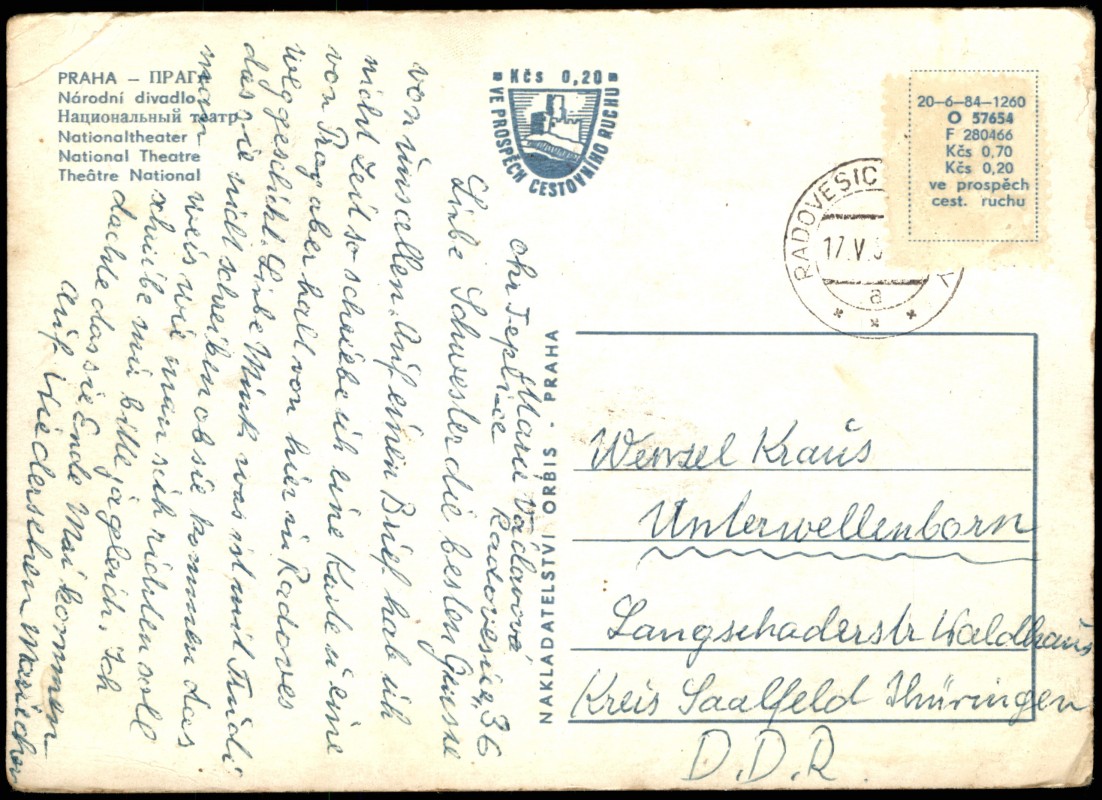 PRAHA – ПРАГА
Národní divadlo
Национальный театр
Nationaltheater
National Theatre
Theâtre National
Kčs 0,20
VE PROSPĚCH CESTOVNÍHO RUCHU
20–6–84–1260
O 57654
F 280466
Kčs 0,70
Kčs 0,20
ve prospěch
cest. ruchu
RADOVESIC
17.V.
a
NAKLADATELSTVÍ ORBIS - PRAHA
Marie Václavová
Radovesice 36
okr Teplice
Liebe Schwester die besten Grüsse
von uns allen. Auf einen Brief hab ich
nicht Zeit so schreibe ich eine Karte u eine
von Prag aber halt von hier in Radoves
weggeschickt. Liebe Mink was ist mit Trudi
das sie nicht schreiben ob sie kommen das
man weis wie man sich richten soll
schreibe mir bitte ja gleich. Ich
dachte das sie Ende Mai kommen
auf Wiedersehen Mariechen
Wenzel Kraus
Unterwellenborn
Langschaderstr Waldhaus
Kreis Saalfeld Thüringen
D.D.R.